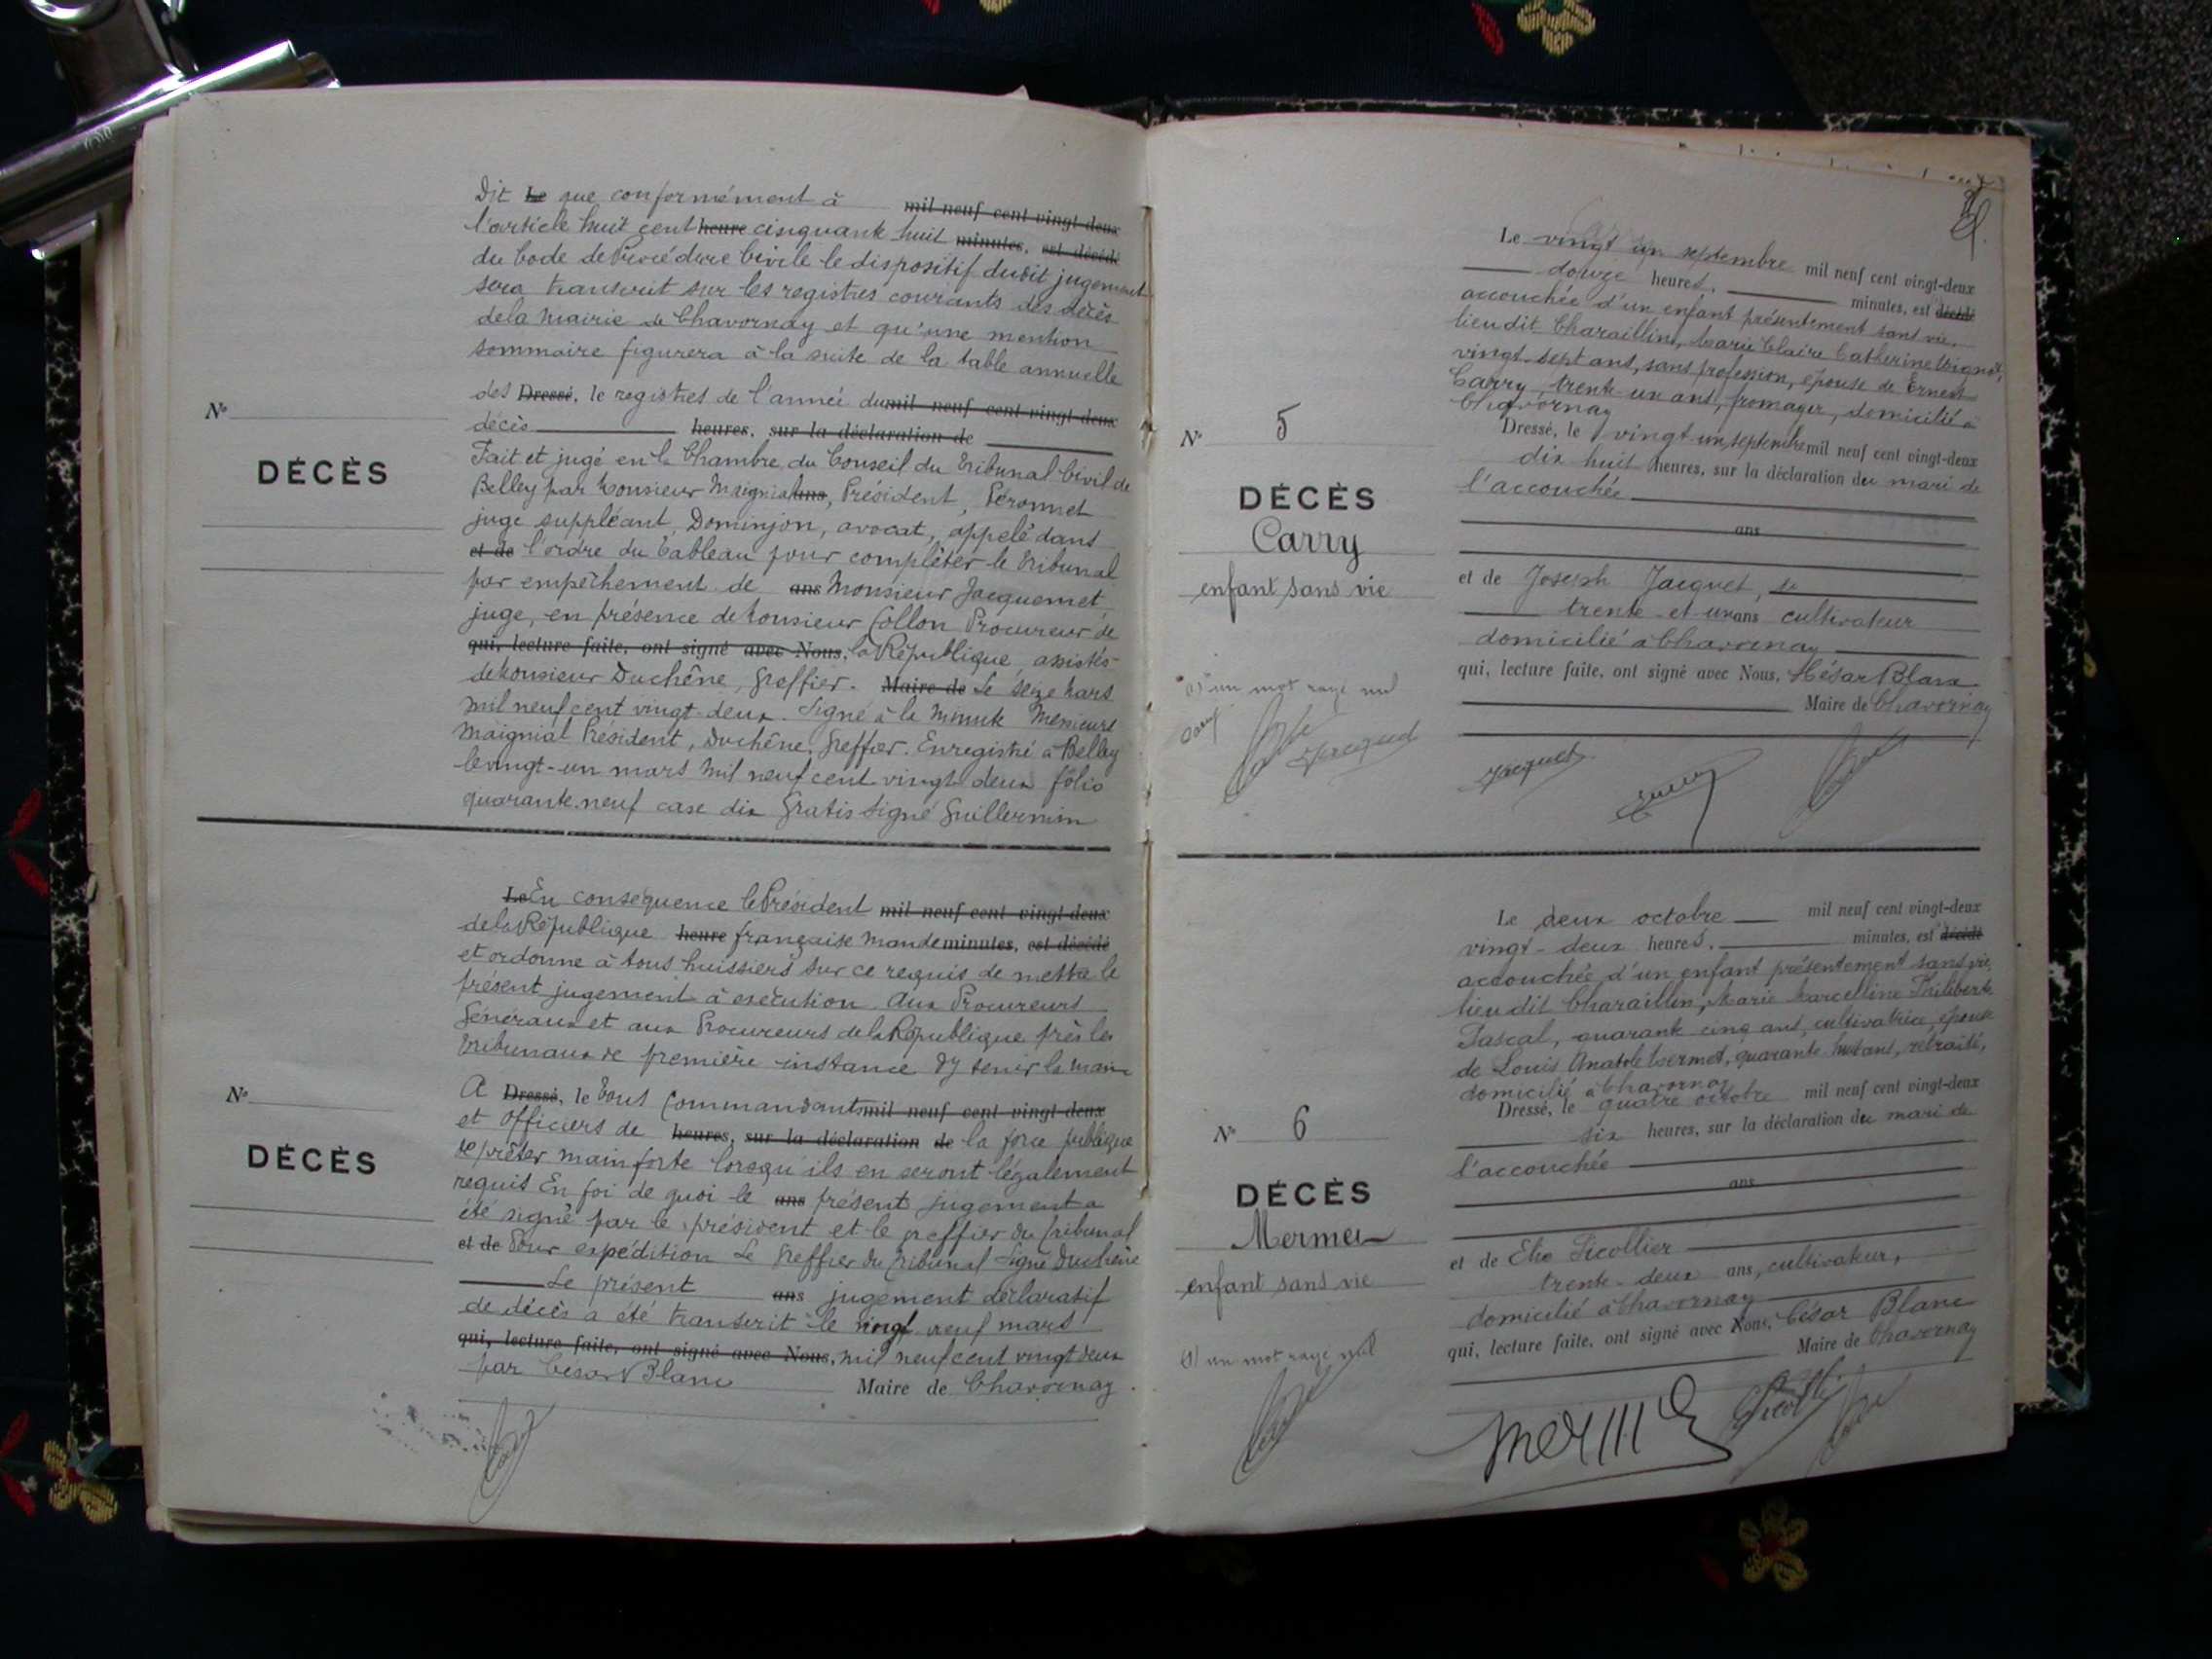 Dit Le que conformément à mil neuf cent vingt-deux
l'article huit cent heure cinquante huit minutes, est décédé
du Code de Procédure Civile le dispositif dudit jugement
sera transcrit sur les registres courants des décès
de la Mairie de Chavornay et qu'une mention
sommaire figurera à la suite de la table annuelle
des Dressé, le registres de l'année du mil neuf cent vingt-deux
décès heures, sur la déclaration de
N°
DÉCÈS
Fait et jugé en la Chambre du Conseil du Tribunal Civil de
Belley par Monsieur Maignial ans, Président, Peronnet
juge suppléant, Dominjon, avocat, appelé dans
et de l'ordre du tableau pour compléter le Tribunal
par empêchement de ans Monsieur Jacquemet
juge, en présence de Monsieur Collon Procureur de
qui, lecture faite, ont signé avec Nous, la République, assistés
de Monsieur Duchêne, Greffier. Maire de Le seize Mars
mil neuf cent vingt-deux. Signé à la Minute Messieurs
Maignial Président, Duchêne, Greffier. Enregistré à Belley
le vingt-un mars mil neuf cent vingt deux folio
quarante-neuf case dix Gratis Signé Guillermin
Le En conséquence le Président mil neuf cent vingt-deux
de la République heure française mande minutes, est décédé
et ordonne à tous huissiers sur ce requis de mettre le
présent jugement à exécution. Aux Procureurs
Généraux et aux Procureurs de la République près les
Tribunaux de première instance d'y tenir la main
A Dressé, le Tous Commandants mil neuf cent vingt-deux
et Officiers de heures, sur la déclaration de la force publique
N°
DÉCÈS
de prêter main forte lorsqu'ils en seront légalement
requis En foi de quoi le ans présent jugement a
été signé par le président et le greffier du tribunal
et de Pour expédition Le Greffier du Tribunal Signé Duchêne
Le présent ans jugement déclaratif
de décès a été transcrit le vingt neuf mars
qui, lecture faite, ont signé avec Nous, mil neuf cent vingt deux
par César Blanc Maire de Chavornay
Le vingt un septembre mil neuf cent vingt-deux
douze heures, minutes, est décédé
accouchée d'un enfant présentement sans vie,
lieu dit Charaillin, Marie Claire Catherine
vingt-sept ans, sans profession, épouse de Ernest
Carry, trente un ans, fromager, domicilié à
Chavornay
Dressé, le vingt un septembre mil neuf cent vingt-deux
dix huit heures, sur la déclaration du mari de
l'accouchée
ans
N° 5
DÉCÈS
Carry
enfant sans vie
et de Joseph Jacquet,
trente et un ans cultivateur
domicilié à Chavornay
qui, lecture faite, ont signé avec Nous, César Blanc
Maire de Chavornay
(1) un mot rayé nul
Jacquet
Jacquet
Carry
Le deux octobre mil neuf cent vingt-deux
vingt-deux heures, minutes, est décédé
accouchée d'un enfant présentement sans vie,
lieu dit Charaillin, Marie Marcelline Philiberte
Pascal, quarante cinq ans, cultivatrice, épouse
de Louis Anatole Mermet, quarante huit ans, retraité,
domicilié à Chavornay
Dressé, le quatre octobre mil neuf cent vingt-deux
six heures, sur la déclaration du mari de
l'accouchée
ans
N° 6
DÉCÈS
Mermet
enfant sans vie
et de Picollier
trente-deux ans, cultivateur,
domicilié à Chavornay
qui, lecture faite, ont signé avec Nous, César Blanc
Maire de Chavornay
(1) un mot rayé nul
Mermet